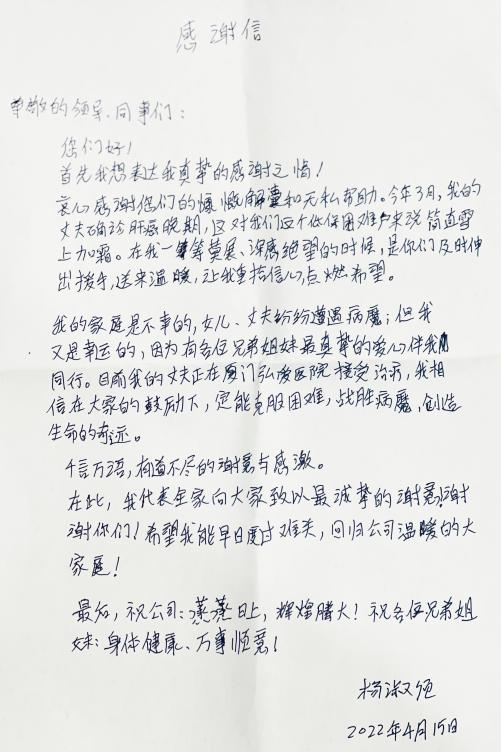 感谢信
尊敬的领导、同事们：
您们好！
首先我想表达我真挚的感谢之情！
衷心感谢您们的慷慨解囊和无私帮助。今年3月，我的
丈夫确诊肝癌晚期，这对我们这个低保困难户来说简直雪
上加霜。在我一筹莫展、深感绝望的时候，是你们及时伸
出援手，送来温暖，让我重拾信心，点燃希望。
我的家庭是不幸的，女儿、丈夫纷纷遭遇病魔；但我
又是幸运的，因为有各位兄弟姐妹最真挚的爱心伴我
同行。目前我的丈夫正在厦门弘爱医院接受治疗，我相
信在大家的鼓励下，定能克服困难，战胜病魔，创造
生命的奇迹。
千言万语，有道不尽的谢意与感激。
在此，我代表全家向大家致以最诚挚的谢意！谢
谢你们！希望我能早日度过难关，回归公司温暖的大
家庭！
最后，祝公司：蒸蒸日上，辉煌腾大！祝各位兄弟姐
妹：身体健康、万事顺意！
杨淑
2022年4月15日